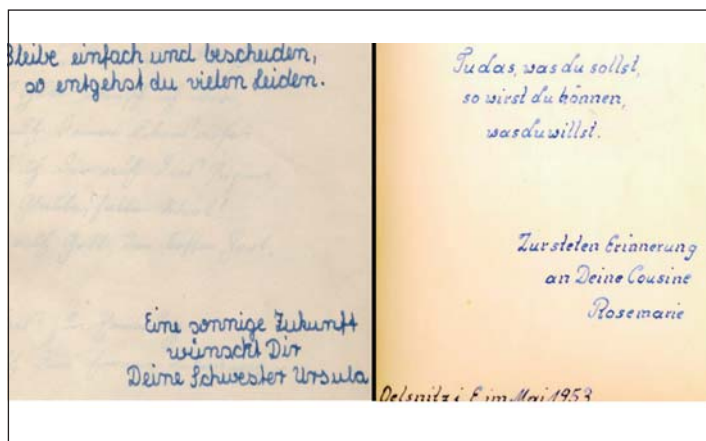 Bleibe einfach und bescheiden,
so entgehst du vielen Leiden.
Eine sonnige Zukunft
wünscht Dir
Deine Schwester Ursula
Tu das, was du sollst,
so wirst du können,
was du willst.
Zur steten Erinnerung
an Deine Cousine
Rosemarie
Oelsnitz i. E. im Mai 1953